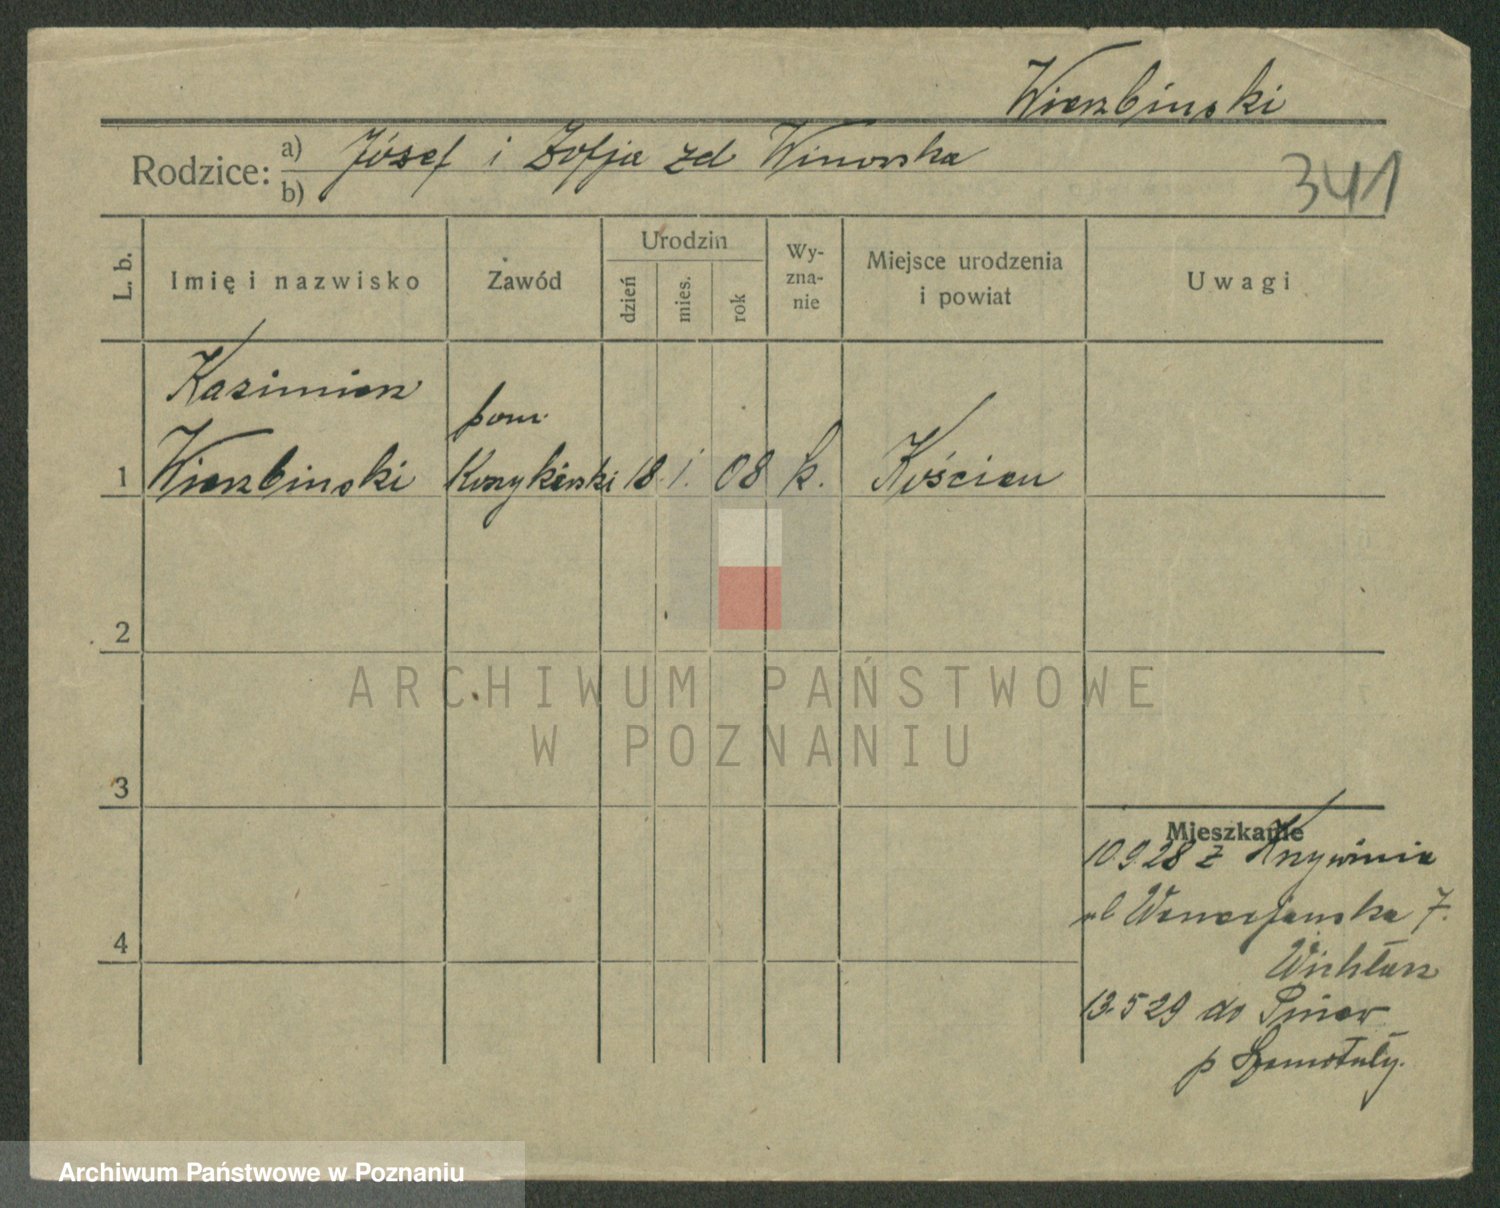 Wierzbinski
Rodzice: a) Józef i Zofja zd Winowska
b)
341
L. b.
Imię i nazwisko
Zawód
Urodzin
dzień
mies.
rok
Wy-
zna-
nie
Miejsce urodzenia
i powiat
Uwagi
Kazimierz
pom
1 Wierzbinski Koszykarski 18. 1. 08 k. Kościan
2
ARCHIWUM PAŃSTWOWE
W POZNANIU
3
Mieszkanie
10 9 28 z Krzywinia
ul Wenecjanska 7.
4
13.5 29 do Pniew
p Szamotuły.
Archiwum Państwowe w Poznaniu